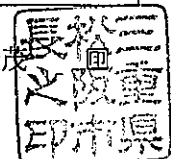 茂
三重県
松阪市
長之印